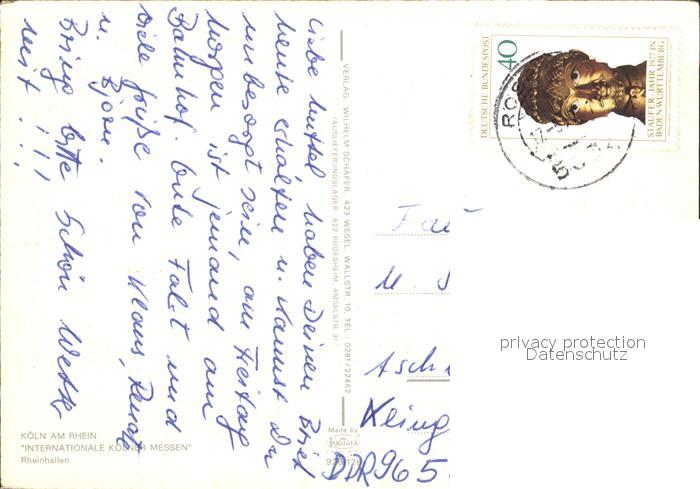 Liebe Muttel haben Deinen Brief
heute erhalten u. kannst Du
unbesorgt sein, am Freitag
morgen ist jemand am
Bahnhof. Gute Fahrt und
viele Grüße von Klaus, Renate
u. Bjorn.
Bring bitte schön Wetter
mit!!!
VERLAG WILHELM SCHÄFER, 423 WESEL, WALLSTR. 10, TEL.: 0281/22462
(AUSLIEFERUNGSLAGER: 622 RÜDESHEIM, AMSELSTR. 3)
DEUTSCHE BUNDESPOST
40
STAUFER-JAHR 1977 IN
BADEN-WÜRTTEMBERG
M. S
Asch
DDR 965
privacy protection
Datenschutz
Made by
KRÜGER
KÖLN AM RHEIN
"INTERNATIONALE KÖLNER MESSEN"
Rheinhallen